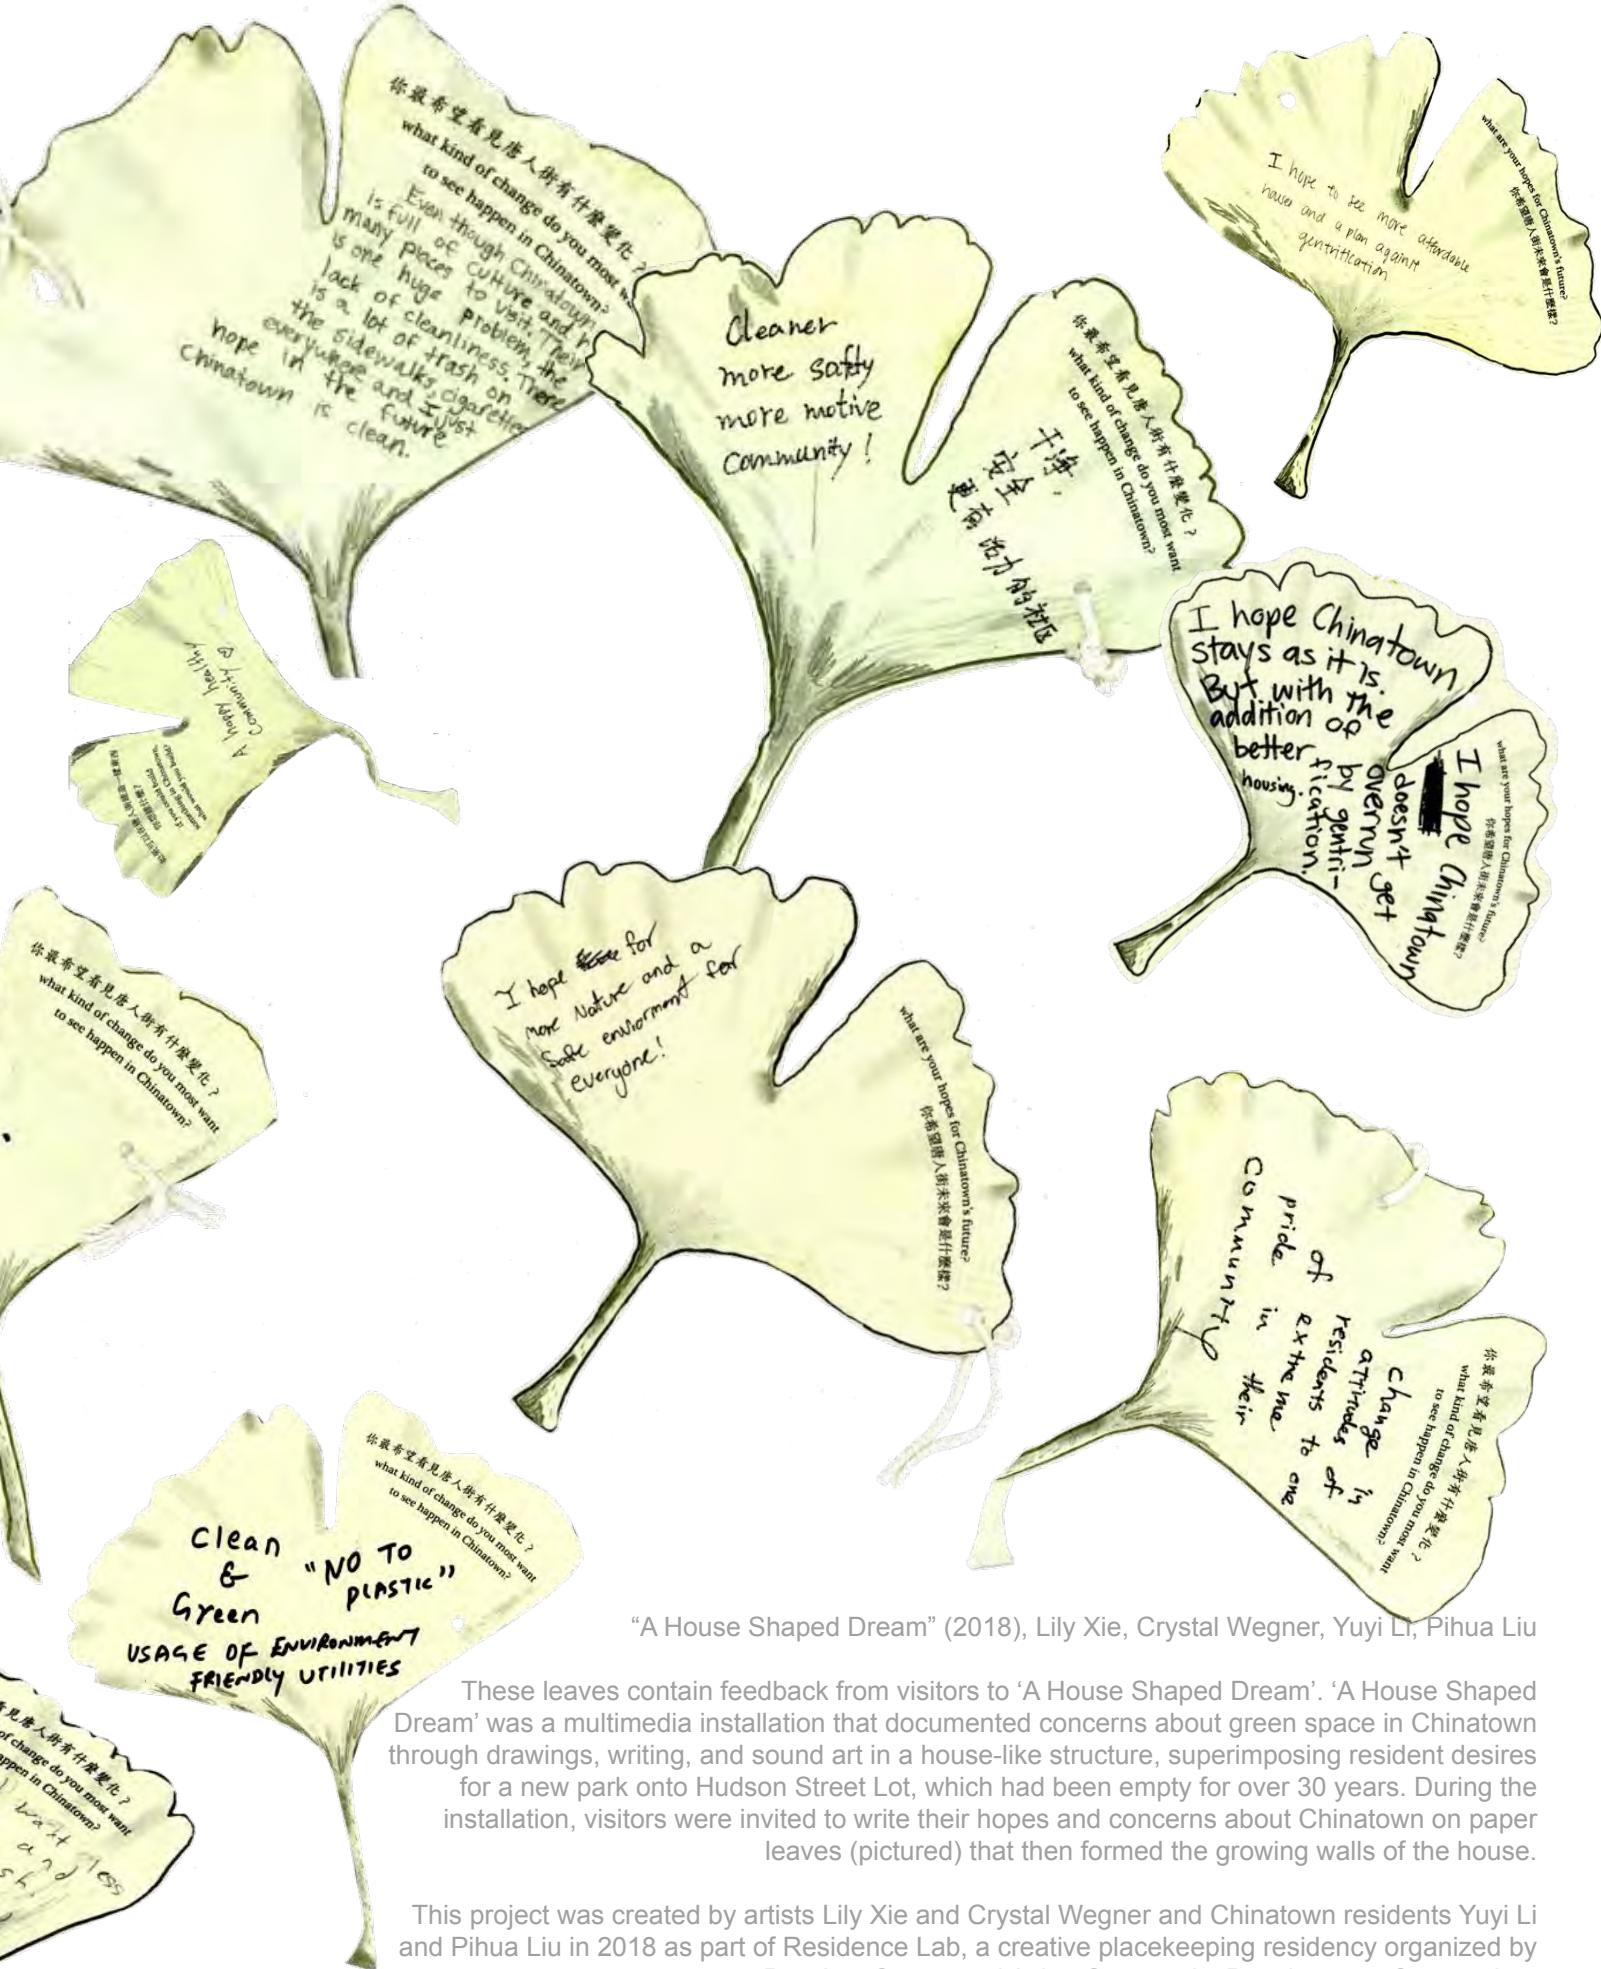 你最希望看見唐人街有什麼變化？
what kind of change do you most w
to see happen in Chinatown?
Even though Chinatown
is full of culture and h
many places to visit. Their
is one huge problem, the
lack of cleanliness. There
is a lot of trash on
the sidewalks, cigarettes
everywhere and I just
hope in the future
Chinatown is clean.
Cleaner
more safty
more motive
community!
你最希望看見唐人街有什麼變化？
what kind of change do you most want
to see happen in Chinatown?
干净,
安全
更有活力的社区
I hope to see more affordable
houses and a plan against
gentrification
what are your hopes for Chinatown's future?
你希望唐人街未來會是什麼樣?
A happy healthy
community
if you could build
something in Chinatown,
what would you build?
I hope Chinatown
stays as it is.
But with the
addition of
better
housing.
I hope Chinatown
doesn't get
overrun
by gentri-
fication.
what are your hopes for Chinatown's future?
你希望唐人街未來會是什麼樣?
你最希望看見唐人街有什麼變化？
what kind of change do you most want
to see happen in Chinatown?
I hope for
more Nature and a
safe enviorment for
everyone!
what are your hopes for Chinatown's future?
你希望唐人街未來會是什麼樣?
change in
attitudes of
residents to one
of extreme
pride in their
community
你最希望看見唐人街有什麼變化？
what kind of change do you most want
to see happen in Chinatown?
你最希望看見唐人街有什麼變化？
what kind of change do you most want
to see happen in Chinatown?
Clean
&
Green
"NO TO
PLASTIC"
USAGE OF ENVIRONMENT
FRIENDLY UTILITIES
見唐人街有什麼變化？
of change do you most want
ppen in Chinatown?
“A House Shaped Dream” (2018), Lily Xie, Crystal Wegner, Yuyi Li, Pihua Liu
These leaves contain feedback from visitors to ‘A House Shaped Dream’. ‘A House Shaped
Dream’ was a multimedia installation that documented concerns about green space in Chinatown
through drawings, writing, and sound art in a house-like structure, superimposing resident desires
for a new park onto Hudson Street Lot, which had been empty for over 30 years. During the
installation, visitors were invited to write their hopes and concerns about Chinatown on paper
leaves (pictured) that then formed the growing walls of the house.
This project was created by artists Lily Xie and Crystal Wegner and Chinatown residents Yuyi Li
and Pihua Liu in 2018 as part of Residence Lab, a creative placekeeping residency organized by